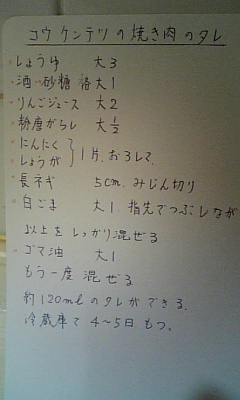 コウケンテツの焼き肉のタレ
・しょうゆ 大3
・酒・砂糖 各大1
・りんごジュース 大2
・粉唐がらし 大½
・にんにく
・しょうが } 1片、おろして、
・長ネギ 5cm、みじん切り
・白ごま 大1、指先でつぶしながら
以上をしっかり混ぜる
・ゴマ油 大1
もう一度混ぜる
約120mlのタレができる。
冷蔵庫で4〜5日もつ。